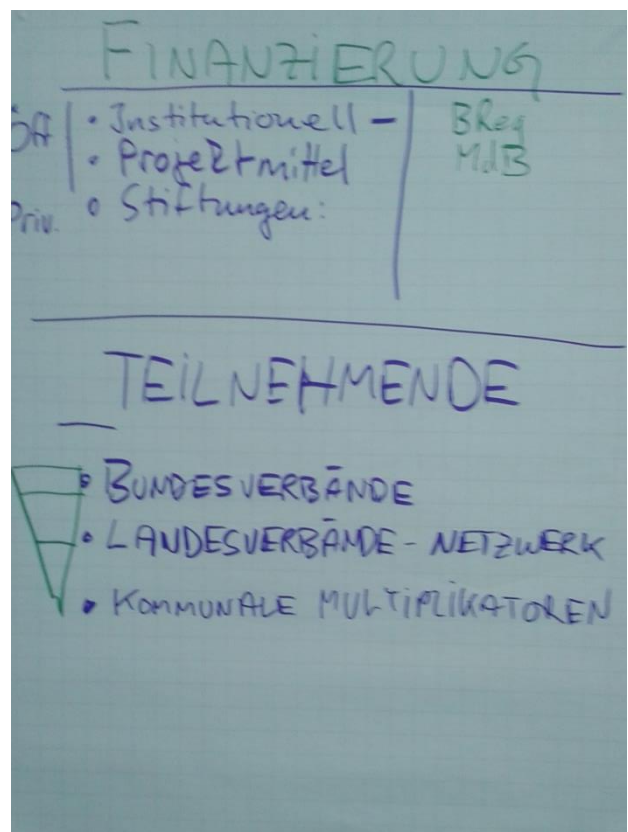 FINANZIERUNG
Öff • Institutionell – BReg
• Projektmittel MdB
Priv. • Stiftungen:
TEILNEHMENDE
• BUNDESVERBÄNDE
• LANDESVERBÄNDE - NETZWERK
• KOMMUNALE MULTIPLIKATOREN